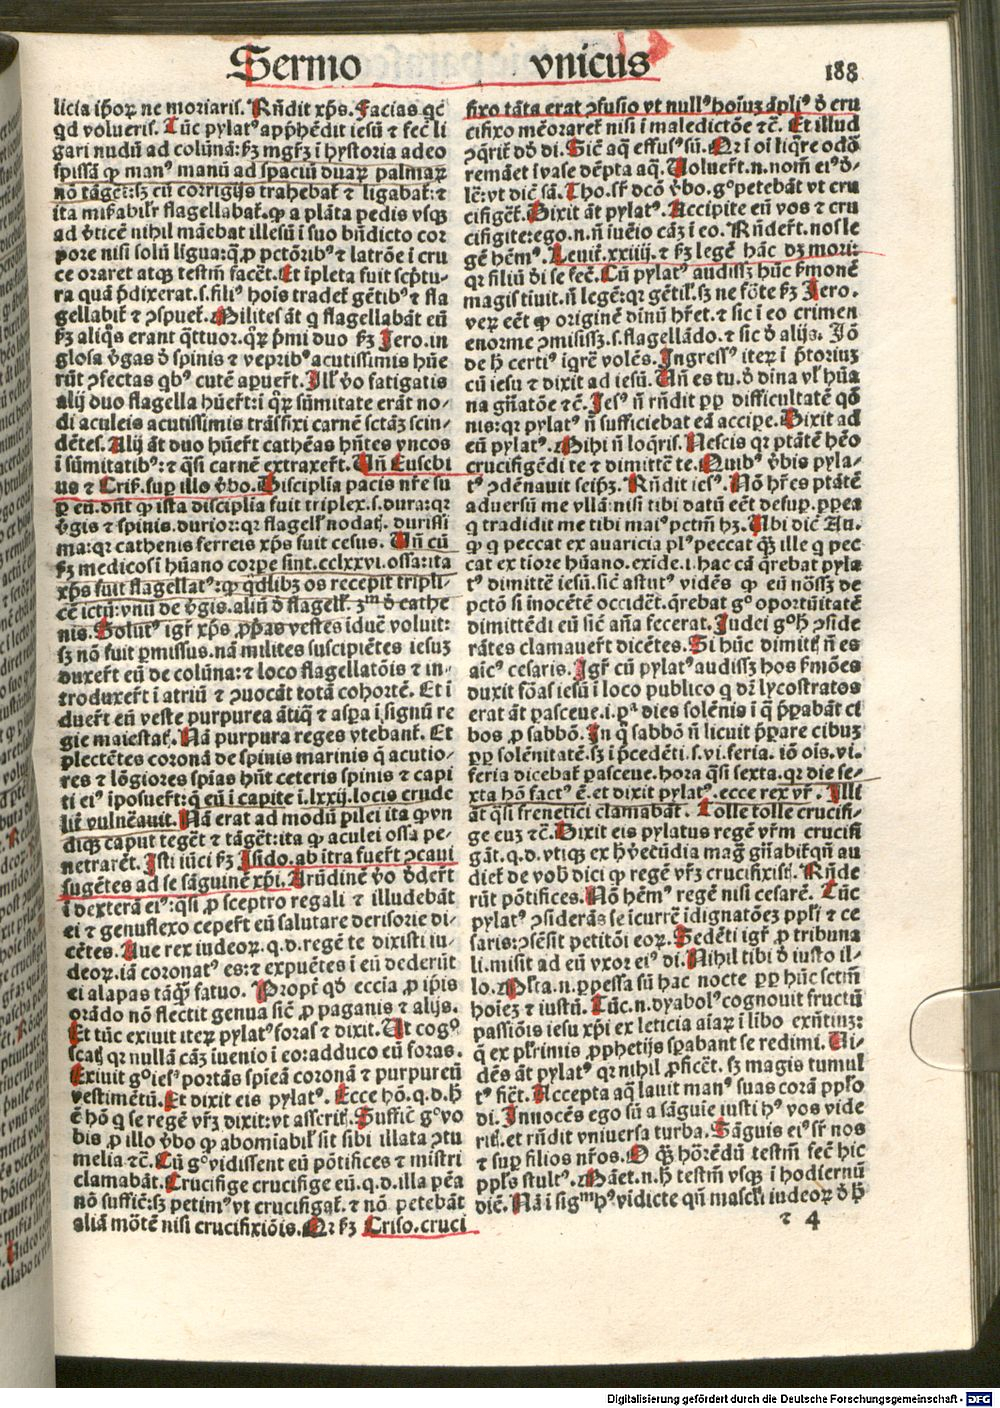 Sermo vnicus 188
licia ip̄oꝝ ne moriaris. Rn̄dit xp̄s. Facias qḗ
qd volueris. Tūc pylatꝰ app̄hēdit iesū ⁊ fec̄ li
gari nudū ad colūnā: ẜꝫ mgr̄ꝫ ī hystoria adeo
spissā ꝙ manꝰ manū ad spaciū duaꝝ palmaꝝ
nō tāgēt: sꝫ eū corrigijs trahebat̄ ⁊ ligabat̄: ⁊
ita mirabilr̄ flagellabat̄. ꝙ a plāta pedis vsqꝫ
ad ṽticē nihil māebat illesū ī suo bn̄dicto cor
pore nisi solū līgua: q̄ ꝓ pctōribꝰ ⁊ latrōe ī cru
ce oraret atqꝫ testm̄ facēt. Et īpleta fuit scptu-
ra quā p̄dixerat .s. filiꝰ hoīs tradet̄ gētibꝰ ⁊ fla
gellabit̄ ⁊ ꝯspuet̄. Milites āt q flagellabāt eū
ẜꝫ aliq̄s erant qttuor. qꝝ p̄mi duo ẜꝫ Jero. in
glosa ṽgas d̄ spinis ⁊ veprib' acutissimis hūe
rūt ꝯfectas qbꝰ cutē apuer̄t. Ill' ṽo fatigatis
alij duo flagella hūer̄t: ī qꝝ sūmitate erāt no-
di aculeis acutissimis trāsfixi carnē sctāꝫ scin-
dētes. Alij āt duo hūer̄t cathēas hn̄tes vncos
ī sūmitatibꝰ: ⁊ qsi carnē extraxer̄t. Un̄ Eusebi
us ⁊ Cris. sup illo ṽbo. Disciplia pacis nr̄e su
ꝑ eū. dn̄t ꝙ ista disciplia fuit triplex .s. dura: qꝛ
ṽgis ⁊ spinis. durior: qꝛ flagell' nodatꝭ. durissi
ma: qꝛ cathenis ferreis xp̄s fuit cesus. Un̄ cū
ẜꝫ medicos ī hūano corpe sint .cclxxvi. ossa: ita
xp̄s fuit flagellatꝰ: ꝙ qdlibꝫ os recepit tripli-
cē ictū: vnū de ṽgis. aliū d̄ flagell'. 3ᵐ d̄ cathe
nis. Solutꝰ igr̄ xp̄s ꝓp̄as vestes īduē voluit:
sꝫ nō fuit ꝑmissus. nā milites suscipiētes iesuꝫ
duxer̄t eū de colūna: ⁊ loco flagellatōis ⁊ in-
troduxer̄t ī atriū ⁊ ꝯuocāt totā cohortē. Et ī
duer̄t eū veste purpurea ātiq̄ ⁊ aspa ī signū re
gie maiestatꝭ. Nā purpura reges vtebant̄. Et
plectētes coronā de spinis marinis q̄ acutio-
res ⁊ lōgiores spīas hn̄t ceteris spinis ⁊ capi
ti eiꝰ īposuer̄t: q̄ eū ī capite ī .lxxij. locis crude
lit̄ vulnēauit. Nā erat ad modū pilei ita ꝙ vn
diqꝫ caput tegēt ⁊ tāgēt: ita ꝙ aculei ossa pe-
netrarēt. Isti iūci ẜꝫ Isido. ab ītra fuer̄t ꝯcaui
sugētes ad se sāguinē xp̄i. Arūdinē ṽo d̄der̄t
ī dexterā eiꝰ: qsi ꝓ sceptro regali ⁊ illudebāt
ei ⁊ genuflexo ceper̄t eū salutare derisorie di-
cētes. Aue rex iudeoꝝ. q.d. regē te dixisti iu-
deoꝝ. iā coronatꝰ es: ⁊ expuētes ī eū dederūt
ei alapas tāq̄ꝫ fatuo. Propt̄ qd̄ eccīa ꝓ ip̄is
orādo nō flectit genua sic̄ ꝓ paganis ⁊ alijs.
Et tūc exiuit iteꝝ pylatꝰ foras ⁊ dixit. Ut cogᵒ
scatꝭ qꝛ nullā cāꝫ iuenio ī eo: adduco eū foras.
Exiuit gᵒ iesꝰ portās spīeā coronā ⁊ purpureū
vestimētū. Et dixit eis pylatꝰ. Ecce hō. q.d. h̄
ē hō q se regē vr̄ꝫ dixit: vt asseritꝭ. Suffic̄ gᵒ vo
bis ꝓ illo ṽbo ꝙ abomiabil' sit sibi illata ꝯtu
melia ⁊c̄. Cū gᵒ vidissent eū pōtifices ⁊ mīstri
clamabāt. Crucifige crucifige eū. q.d. illa pēa
nō suffic̄: sꝫ petimꝰ vt crucifigat̄. ⁊ nō petebāt
aliā mōtē nisi crucifixiōis. Qꝛ ẜꝫ Criso. cruci
fixo tāta erat ꝯfusio vt nullꝰ hoīuꝫ ampliꝰ d̄ cru
cifixo mēoraret̄ nisi ī maledictōe ⁊c̄. Et illud
ꝯqrit̄ dd̄ di. Sic̄ aq̄ effusꝰ sū. Qꝛ ī oī liqre odō
remāet ī vase dēpta aq̄. Uoluer̄t .n. nom̄ eiꝰ d̄-
lē: vt dic̄ sā. Tho. sr̄ dcō ṽbo. gᵒ petebāt vt cru
cifigēt̄. Dixit āt pylatꝰ. Accipite eū vos ⁊ cru
cifigite: ego .n. n̄ iuēio cāꝫ ī eo. Rn̄der̄t. nos le
gē hēmꝰ. Leuit̄. xxiiij. ⁊ ẜꝫ legē hāc dꝫ mori:
qꝛ filiū d̄i se fec̄. Cū pylatꝰ audissꝫ hūc ẜmonē
magis tiuit. n̄ legē: qꝛ gētil'. sꝫ ne fōte ẜꝫ Jero.
veꝝ eēt ꝙ originē dīnū hr̄et. ⁊ sic ī eo crimen
enorme ꝯmisissꝫ .s. flagellādo. ⁊ sic d̄ alijs. Iō
de h̄ certiꝰ iqrē volēs. Ingressꝰ iteꝝ ī p̄toriuꝫ
cū iesu ⁊ dixit ad iesū. Un̄ es tu. d̄ dīna vl' hūa
na gn̄atōe ⁊c̄. Jesꝰ n̄ rn̄dit ꝓꝑ difficultatē qō
nis: qꝛ pylatꝰ n̄ sufficiebat eā accipe. Dixit ad
eū pylatꝰ. Mihi n̄ loqris. Nescis qꝛ ptātē hēo
crucifigēdi te ⁊ dimittē te. Quibꝰ ṽbis pyla-
tꝰ ꝯdēnauit seipꝫ. Rn̄dit iesꝰ. Nō hr̄es ptātē
aduersū me vllā: nisi tibi datū eēt desuꝑ. ꝓꝑea
q tradidit me tibi maiꝰ pctm̄ hꝫ. Ubi dic̄ Au.
ꝙ q peccat ex auaricia plꝰ peccat qꝫ ille q pec
cat ex tiore hūano. exide .i. hac cā qrebat pyla
tꝰ dimittē iesū. sic̄ astutꝰ vidēs ꝙ eū nōssꝫ de
pctō si inocētē occidēt. qrebat gᵒ oportūitatē
dimittēdi eū sic̄ an̄a fecerat. Judei gᵒ h̄ ꝯside
rātes clamauer̄t dicētes. Si hūc dimittꝭ n̄ es
aīcꝰ cesaris. Igr̄ cū pylatꝰ audissꝫ hos ẜmōes
duxit fōas iesū ī loco publico q dr̄ lycostratos
erat āt pasceue .i. pᵃ dies solēnis ī q̄ p̄ꝑabāt ci
bos ꝓ sabbō. In q̄ sabbō n̄ licuit p̄ꝑare cibuꝫ
ꝓꝑ solēnitatē. sꝫ ī p̄cedēti .s. vi. feria. iō oīs .vi.
feria dicebat̄ pasceue. hora qsi sexta. qꝛ die se-
xta hō factꝰ ē. et dixit pylatꝰ. ecce rex vr̄. Illi
āt qsi frenetici clamabāt. Tolle tolle crucifi-
ge euꝫ ⁊c̄. Dixit eis pylatus regē vr̄m crucifi
gāt. q.d. vtiqꝫ ex h̄ ṽecūdia mag̅ gn̄abit̄ qn̄ au
diet̄ de vob̄ dici ꝙ regē vr̄ꝫ crucifixistꝭ. Rn̄de
rūt pōtifices. Nō hēmꝰ regē nisi cesarē. Tūc
pylatꝰ ꝯsiderās se icurrē īdignatōeꝫ ppl'i ⁊ ce
saris: ꝯsēsit petitōi eoꝝ. Sedēti igr̄ ꝓ tribuna
li. misit ad eū vxor eiꝰ di. Nihil tibi d̄ iusto il-
lo. Ml'ta .n. ꝑpessa sū hac nocte ꝓꝑ hūc sctm̄
hoīeꝫ ⁊ iustū. Tūc .n. dyabolꝰ cognouit fructū
passiōis iesu xp̄i ex leticia aīaꝝ ī libo exn̄tiuꝫ:
q̄ ex pl'rimis ꝓphetijs spabant se redimi. Ui-
dēs āt pylatꝰ qꝛ nihil ꝓficēt. sꝫ magis tumul
tꝰ fiēt. Accepta aq̄ lauit manꝰ suas corā pplō
di. Innocēs ego sū a sāguīe iusti hꝰ vos vide
ritꝭ. et rn̄dit vniuersa turba. Sāguis eiꝰ sr̄ nos
⁊ suꝑ filios nr̄os. O qꝫ hōrēdū testm̄ fec̄ hic
ppl's stultꝰ. Māet .n. h̄ testm̄ vsqꝫ ī hodiernū
diē. Nā ī sigᵐ hꝰ vidicte qn̄ mascl'i iudeoꝝ d̄ h̄
⁊ 4
Digitalisierung gefördert durch die Deutsche Forschungsgemeinschaft - DFG